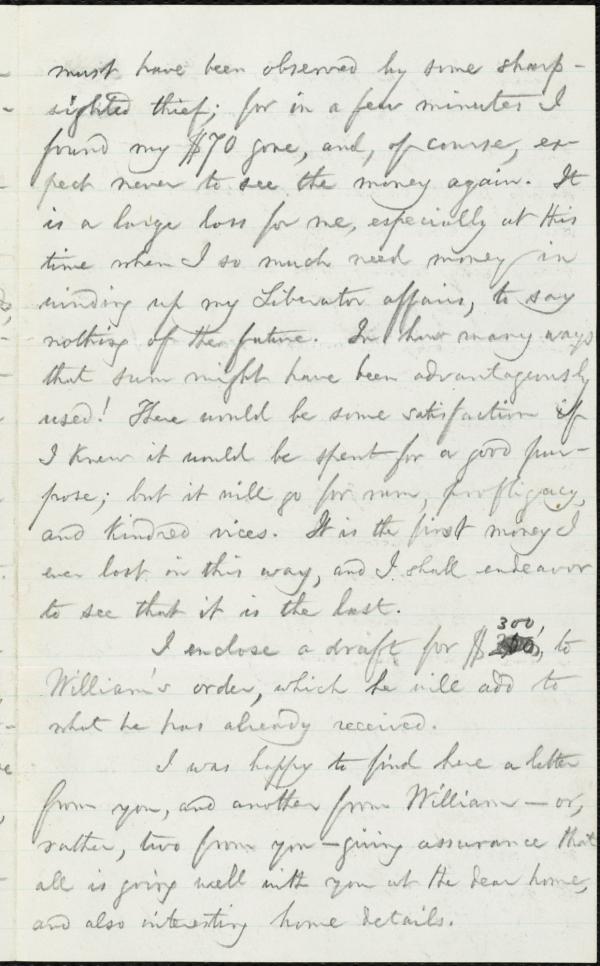 must have been observed by some sharp-
sighted thief; for in a few minutes I
found my $70 gone, and, of course, ex-
pect never to see the money again. It
is a large loss for me, especially at this
time when I so much need money in
winding up my Liberator affairs, to say
nothing of the future. In how many ways
that sum might have been advantageously
used! There would be some satisfaction if
I knew it would be spent for a good pur-
pose; but it will go for rum, profligacy,
and kindred vices. It is the first money I
ever lost in this way, and I shall endeavor
to see that it is the last.
300,
I enclose a draft for $ to
William's order, which he will add to
what he has already received.
I was happy to find here a letter
from you, and another from William — or,
rather, two from you — giving assurance that
all is going well with you at the dear home,
and also interesting home details.